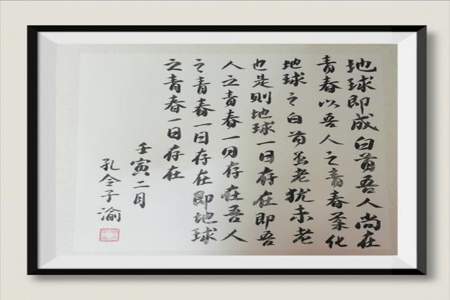 地球即成白首吾人尚在
青春以吾人之青春柔化
地球之白首虽老犹未老
也是则地球一日存在即吾
人之青春一日存在吾人
之青春一日存在即地球
之青春一日存在
壬寅二月
孔令子渝